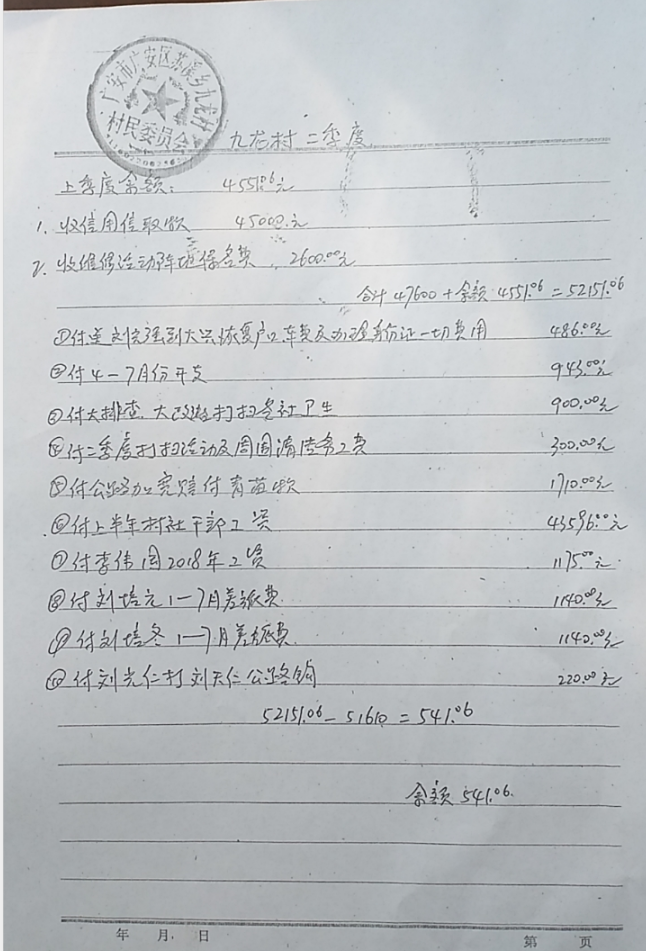 广安市广安区苏溪乡九龙村
村民委员会
九龙村二季度
上季度余额: 4551.06元
1. 收信用借取款 45000.元
2. 收维修活动阵地保务费 2600.00元
合计 47600 + 余额 4551.06 = 52151.06
①付差刘 到大 恢复户口车费及办理身份证一切费用 486.00元
②付4-7月份开支 943.00元
③付大排查、大 打扫各社卫生 900.00元
④付二季度打扫活动及周围清 务工费 300.00元
⑤付公路加宽赔付青苗款 1710.00元
⑥付上半年村社干部工资 43596.00元
⑦付李伟国2018年工资 1175.00元
⑧付刘培元1-7月差旅费 1140.00元
⑨付刘培冬1-7月差旅费 1140.00元
⑩付刘光仁打刘天仁公路 220.00元
52151.06 - 51610 = 541.06
余额 541.06.
年 月 日 第 页